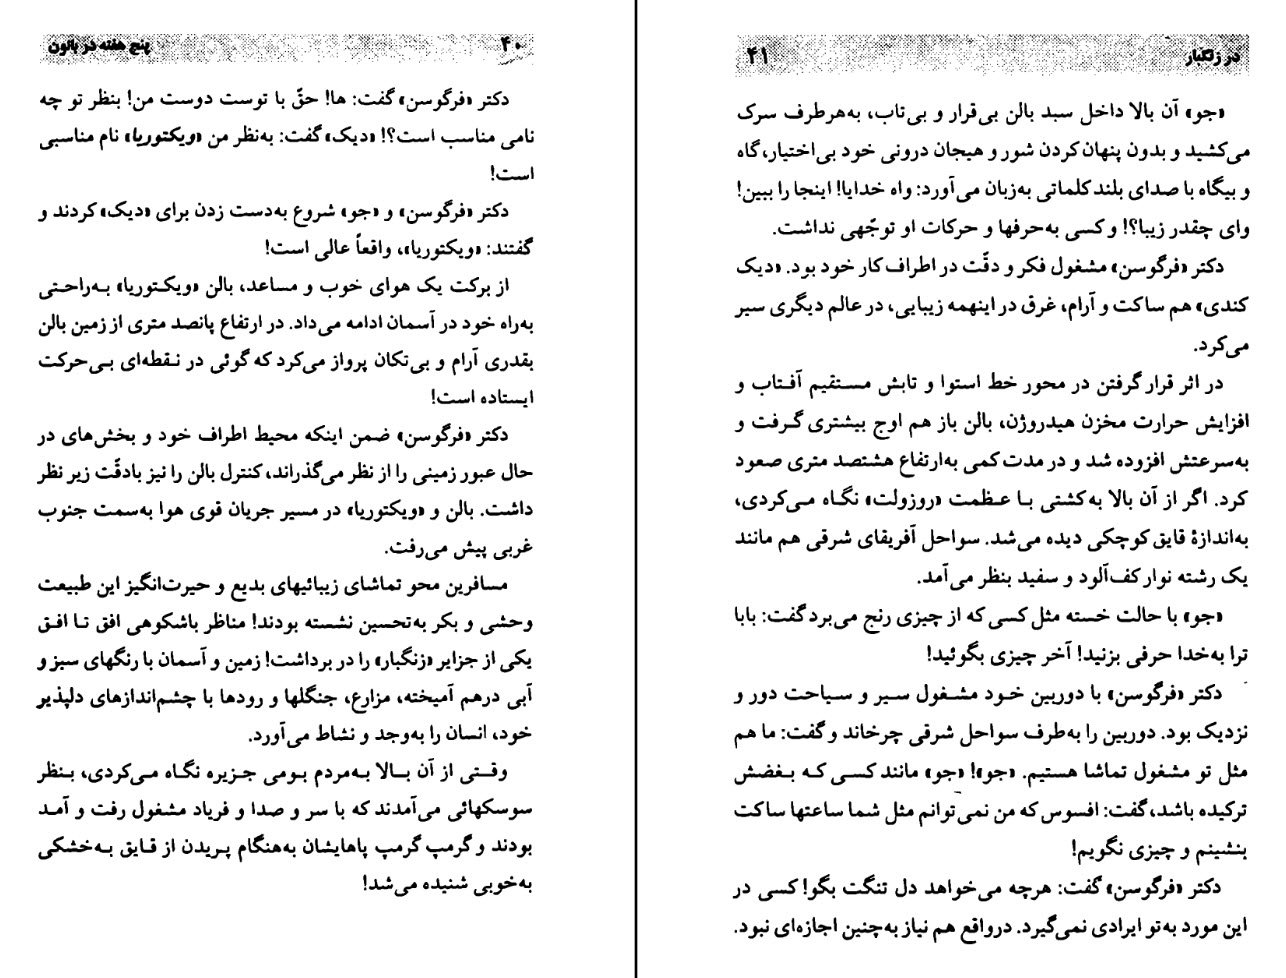 ۴۰ پنج هفته در بالون
دکتر «فرگوسن» گفت: ها! حقّ با توست دوست من! بنظر تو چه
نامی مناسب است؟! «دیک» گفت: به‌نظر من «ویکتوریا» نام مناسبی
است!
دکتر «فرگوسن» و «جو» شروع به‌دست زدن برای «دیک» کردند و
گفتند: «ویکتوریا»، واقعاً عالی است!
از برکت یک هوای خوب و مساعد، بالن «ویکتوریا» به‌راحتی
به‌راه خود در آسمان ادامه می‌داد. در ارتفاع پانصد متری از زمین بالن
بقدری آرام و بی‌تکان پرواز می‌کرد که گوئی در نقطه‌ای بی‌حرکت
ایستاده است!
دکتر «فرگوسن» ضمن اینکه محیط اطراف خود و بخش‌های در
حال عبور زمینی را از نظر می‌گذراند، کنترل بالن را نیز بادقّت زیر نظر
داشت. بالن و «ویکتوریا» در مسیر جریان قوی هوا به‌سمت جنوب
غربی پیش می‌رفت.
مسافرین محو تماشای زیبائیهای بدیع و حیرت‌انگیز این طبیعت
وحشی و بکر به‌تحسین نشسته بودند! مناظر باشکوهی افق تا افق
یکی از جزایر «زنگبار» را در برداشت! زمین و آسمان با رنگهای سبز و
آبی درهم آمیخته، مزارع، جنگلها و رودها با چشم‌اندازهای دلپذیر
خود، انسان را به‌وجد و نشاط می‌آورد.
وقتی از آن بالا به‌مردم بومی جزیره نگاه می‌کردی، بنظر
سوسکهائی می‌آمدند که با سر و صدا و فریاد مشغول رفت و آمد
بودند و گرمپ گرمپ پاهایشان به‌هنگام پریدن از قایق به‌خشکی
به‌خوبی شنیده می‌شد!
در زنگبار ۴۱
«جو» آن بالا داخل سبد بالن بی‌قرار و بی‌تاب، به‌هرطرف سرک
می‌کشید و بدون پنهان کردن شور و هیجان درونی خود بی‌اختیار، گاه
و بیگاه با صدای بلند کلماتی به‌زبان می‌آورد: واه خدایا! اینجا را ببین!
وای چقدر زیبا؟! و کسی به‌حرفها و حرکات او توجّهی نداشت.
دکتر «فرگوسن» مشغول فکر و دقّت در اطراف کار خود بود. «دیک
کندی» هم ساکت و آرام، غرق در اینهمه زیبایی، در عالم دیگری سیر
می‌کرد.
در اثر قرار گرفتن در محور خط استوا و تابش مستقیم آفتاب و
افزایش حرارت مخزن هیدروژن، بالن باز هم اوج بیشتری گرفت و
به‌سرعتش افزوده شد و در مدت کمی به‌ارتفاع هشتصد متری صعود
کرد. اگر از آن بالا به‌کشتی با عظمت «روزولت» نگاه می‌کردی،
به‌اندازهٔ قایق کوچکی دیده می‌شد. سواحل آفریقای شرقی هم مانند
یک رشته نوار کف‌آلود و سفید بنظر می‌آمد.
«جو» با حالت خسته مثل کسی که از چیزی رنج می‌برد گفت: بابا
ترا به‌خدا حرفی بزنید! آخر چیزی بگوئید!
دکتر «فرگوسن» با دوربین خود مشغول سیر و سیاحت دور و
نزدیک بود. دوربین را به‌طرف سواحل شرقی چرخاند و گفت: ما هم
مثل تو مشغول تماشا هستیم. «جو»! «جو» مانند کسی که بغضش
ترکیده باشد، گفت: افسوس که من نمی‌توانم مثل شما ساعتها ساکت
بنشینم و چیزی نگویم!
دکتر «فرگوسن» گفت: هرچه می‌خواهد دل تنگت بگو! کسی در
این مورد به‌تو ایرادی نمی‌گیرد. درواقع هم نیاز به‌چنین اجازه‌ای نبود.